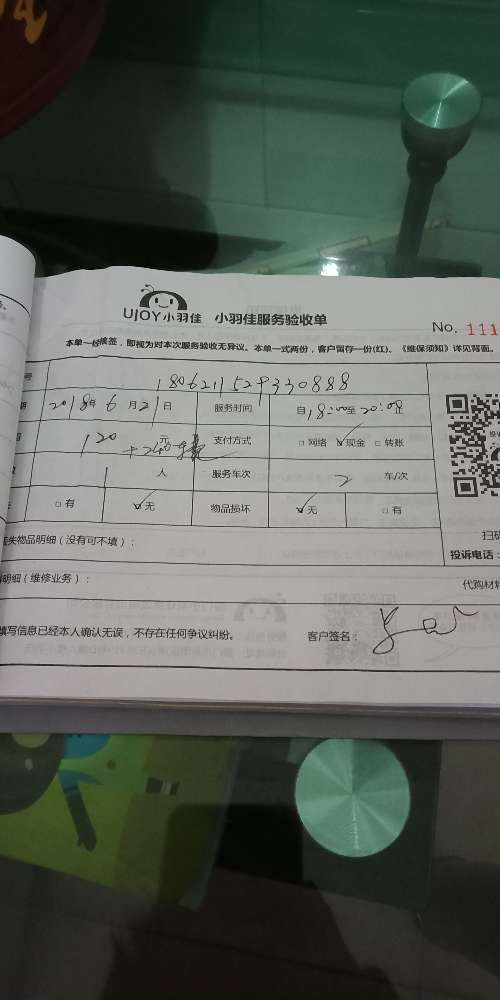 UJOY小羽佳 小羽佳服务验收单
No. 111
本单一经核签，即视为对本次服务无异议。本单一式两份，客户留存一份(红)。《维保须知》详见背面。
号 180621152933088 8
期 2018年 6月21日 服务时间 自18:00至20:00止
120 元 支付方式 □网络 ☑现金 □转账
1人 服务车次 2 车/次
□有 ☑无 物品损坏 ☑无 □有
失物品明细（没有可不填）：
扫码
投诉电话：
明细（维修业务）：
代购材料
填写信息已经本人确认无误，不存在任何争议纠纷。 客户签名：